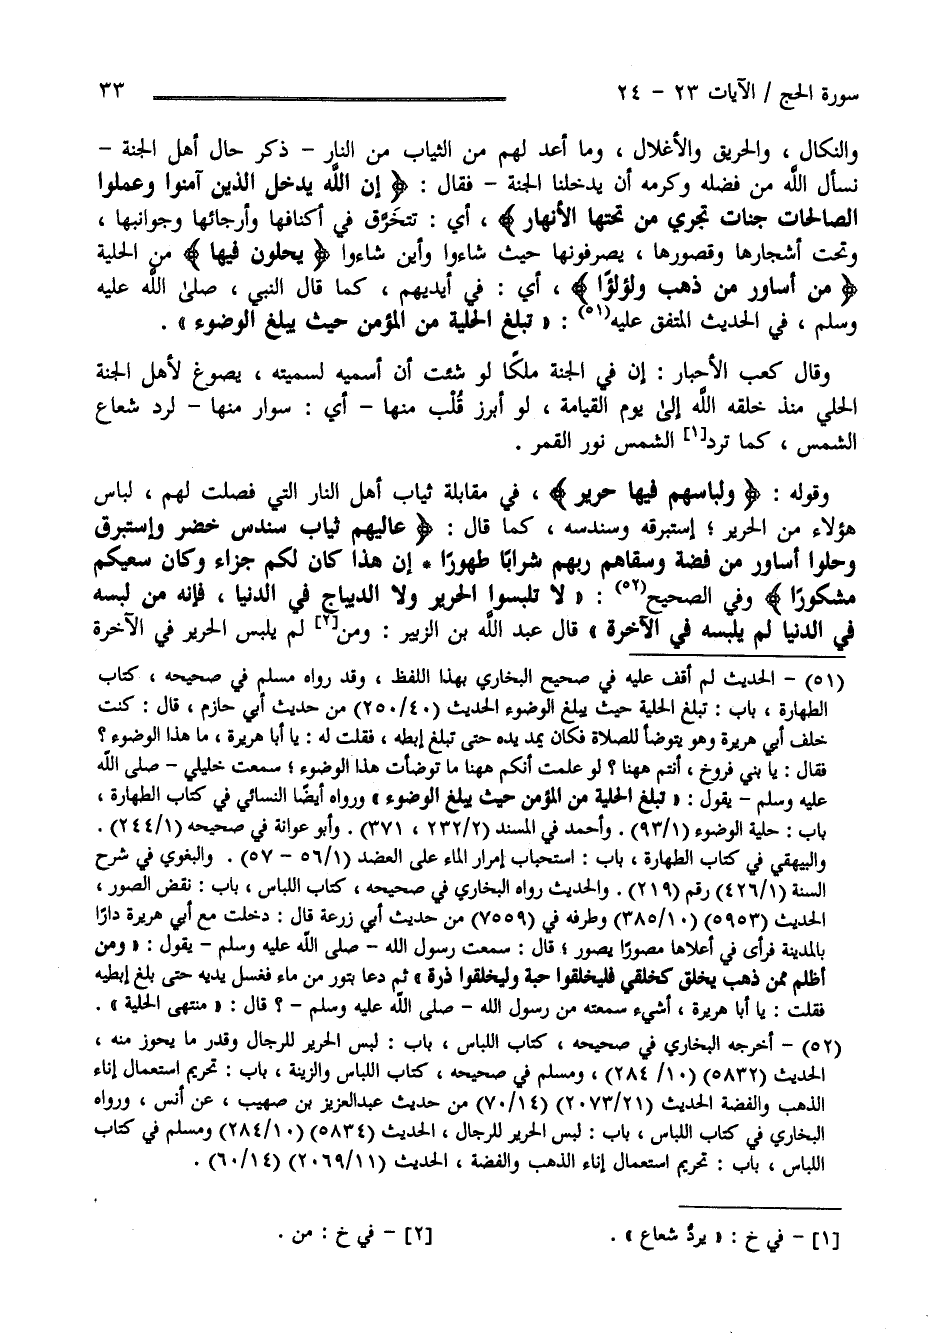 سورة الحج / الآيات ٢٣ - ٢٤ ٣٣
والنكال ، والحريق والأغلال ، وما أعد لهم من الثياب من النار - ذكر حال أهل الجنة -
نسأل اللَّه من فضله وكرمه أن يدخلنا الجنة - فقال : ﴿ إن اللَّه يدخل الذين آمنوا وعملوا
الصالحات جنات تجري من تحتها الأنهار ﴾ ، أي : تتخَرَّق في أكنافها وأرجائها وجوانبها ،
وتحت أشجارها وقصورها ، يصرفونها حيث شاءوا وأين شاءوا ﴿ يحلون فيها ﴾ من الحلية
﴿ من أساور من ذهب ولؤلؤًا ﴾ ، أي : في أيديهم ، كما قال النبي ، صلىٰ اللَّه عليه
وسلم ، في الحديث المتفق عليه(٥١) : « تبلغ الحلية من المؤمن حيث يبلغ الوضوء » .
وقال كعب الأحبار : إن في الجنة ملكًا لو شئت أن أسميه لسميته ، يصوغ لأهل الجنة
الحلي منذ خلقه اللَّه إلىٰ يوم القيامة ، لو أبرز قُلْب منها - أي : سوار منها - لرد شعاع
الشمس ، كما ترد[١] الشمس نور القمر .
وقوله : ﴿ ولباسهم فيها حرير ﴾ ، في مقابلة ثياب أهل النار التي فصلت لهم ، لباس
هؤلاء من الحرير ؛ إستبرقه وسندسه ، كما قال : ﴿ عاليهم ثياب سندس خضر وإستبرق
وحلوا أساور من فضة وسقاهم ربهم شرابًا طهورًا * إن هذا كان لكم جزاء وكان سعيكم
مشكورًا ﴾ وفي الصحيح(٥٢) : « لا تلبسوا الحرير ولا الديباج في الدنيا ، فإنه من لبسه
في الدنيا لم يلبسه في الآخرة » قال عبد اللَّه بن الزبير : ومن[٢] لم يلبس الحرير في الآخرة
(٥١) - الحديث لم أقف عليه في صحيح البخاري بهذا اللفظ ، وقد رواه مسلم في صحيحه ، كتاب
الطهارة ، باب : تبلغ الحلية حيث يبلغ الوضوء الحديث (٢٥٠/٤٠) من حديث أبي حازم ، قال : كنت
خلف أبي هريرة وهو يتوضأ للصلاة فكان يمد يده حتى تبلغ إبطه ، فقلت له : يا أبا هريرة ، ما هذا الوضوء ؟
فقال : يا بني فروخ ، أنتم ههنا ؟ لو علمت أنكم ههنا ما توضأت هذا الوضوء ؛ سمعت خليلي - صلى اللَّه
عليه وسلم - يقول : « تبلغ الحلية من المؤمن حيث يبلغ الوضوء » ورواه أيضًا النسائي في كتاب الطهارة ،
باب : حلية الوضوء (٩٣/١) . وأحمد في المسند (٢٣٢/٢ ، ٣٧١) . وأبو عوانة في صحيحه (٢٤٤/١) .
والبيهقي في كتاب الطهارة ، باب : استحباب إمرار الماء على العضد (٥٦/١ - ٥٧) . والبغوي في شرح
السنة (٤٢٦/١) رقم (٢١٩) . والحديث رواه البخاري في صحيحه ، كتاب اللباس ، باب : نقض الصور ،
الحديث (٥٩٥٣) (٣٨٥/١٠) وطرفه في (٧٥٥٩) من حديث أبي زرعة قال : دخلت مع أبي هريرة دارًا
بالمدينة فرأى في أعلاها مصورًا يصور ؛ قال : سمعت رسول الله - صلى اللَّه عليه وسلم - يقول : « ومن
أظلم ممن ذهب يخلق كخلقي فليخلقوا حبة وليخلقوا ذرة » ثم دعا بتور من ماء فغسل يديه حتى بلغ إبطيه
فقلت : يا أبا هريرة ، أشيء سمعته من رسول الله - صلى اللَّه عليه وسلم - ؟ قال : « منتهى الحلية » .
(٥٢) - أخرجه البخاري في صحيحه ، كتاب اللباس ، باب : لبس الحرير للرجال وقدر ما يحوز منه ،
الحديث (٥٨٣٢) (١٠/ ٢٨٤) ، ومسلم في صحيحه ، كتاب اللباس والزينة ، باب : تحريم استعمال إناء
الذهب والفضة الحديث (٢٠٧٣/٢١) (٧٠/١٤) من حديث عبدالعزيز بن صهيب ، عن أنس ، ورواه
البخاري في كتاب اللباس ، باب : لبس الحرير للرجال ، الحديث (٥٨٣٤) (٢٨٤/١٠) ومسلم في كتاب
اللباس ، باب : تحريم استعمال إناء الذهب والفضة ، الحديث (٢٠٦٩/١١) (٦٠/١٤) .
[١] - في خ : « يردُّ شعاع » . [٢] - في خ : من .